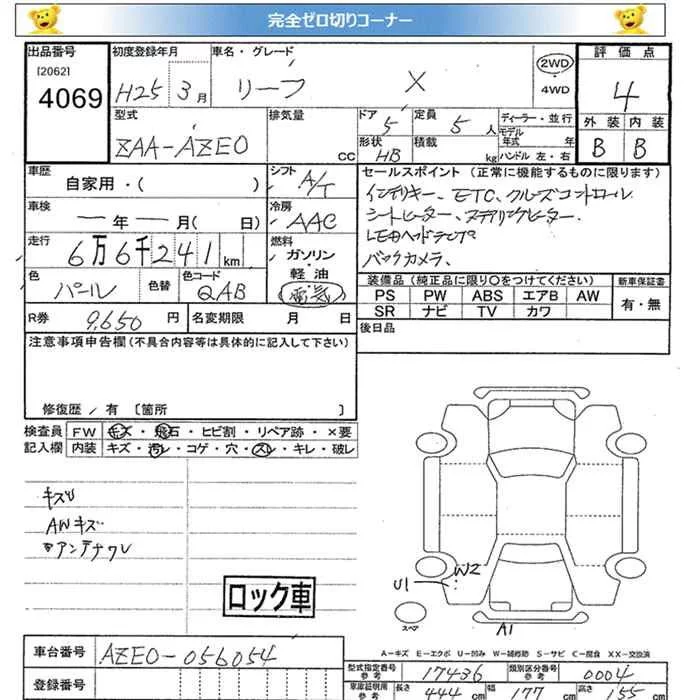 完全ゼロ切りコーナー
出品番号 初度登録年月 車名・グレード 評価点
[2062]
4069
H25 3月 リーフ X
2WD
4WD
4
型式 排気量 ドア 定員 ディーラー・並行 外装 内装
ZAA-AZE0 CC 5 5人 モデル年式 年 B B
形状 積載
HB kg ハンドル 左・右
車歴 シフト セールスポイント (正常に機能するものに限ります)
自家用・( ) A/T
インテリキー、ETC、クルーズコントロール
シートヒーター、ステアリングヒーター、
LEDヘッドランプ
バックカメラ、
車検 冷房
ー年ー月( 日) AAC
走行 燃料
6万6千241km ガソリン
軽油
電気
色 色替 色コード
パール QAB
装備品 (純正品に限り○をつけてください) 新車保証書
PS PW ABS エアB AW 有・無
SR ナビ TV カワ
R券 9,650円 名変期限 月 日
後日品
注意事項申告欄(不具合内容等は具体的に記入して下さい)
修復歴/有 [箇所 ]
検査員 FW キズ・飛石・ヒビ割・リペア跡・×要
記入欄 内装 キズ・汚レ・コゲ・穴・スレ・キレ・破レ
キズU
AWキズ
アンテナワレ
ロック車
U1 W2
スペア A1
A-キズ E-エクボ U-凹み W-補修跡 S-サビ C-腐食 XX-交換済
車台番号 AZE0-056054
登録番号
型式指定番号 参考 17436 類別区分番号 参考 0004
車庫証明用 参考 長さ 444cm 幅 177cm 高さ 155cm